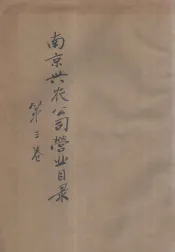 南京共农公司营业目录
第三卷